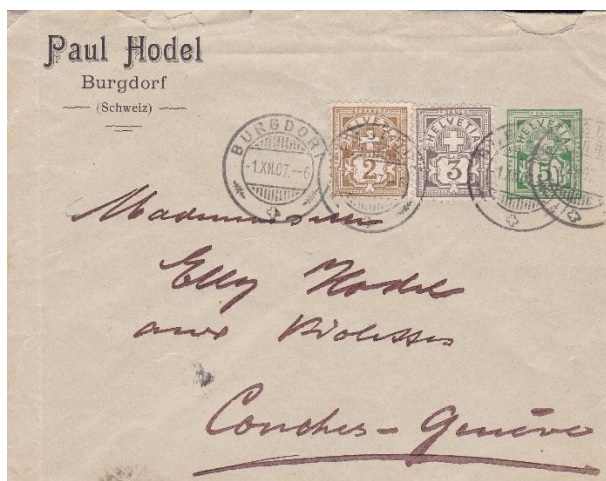 Paul Hodel
Burgdorf
(Schweiz)
BURGDORF
-1.XII.07.-6
FRANCO
HELVETIA
2
FRANCO
HELVETIA
3
HELVETIA
5
Mademoiselle
Elly Hodel
aux
Conches-Genève